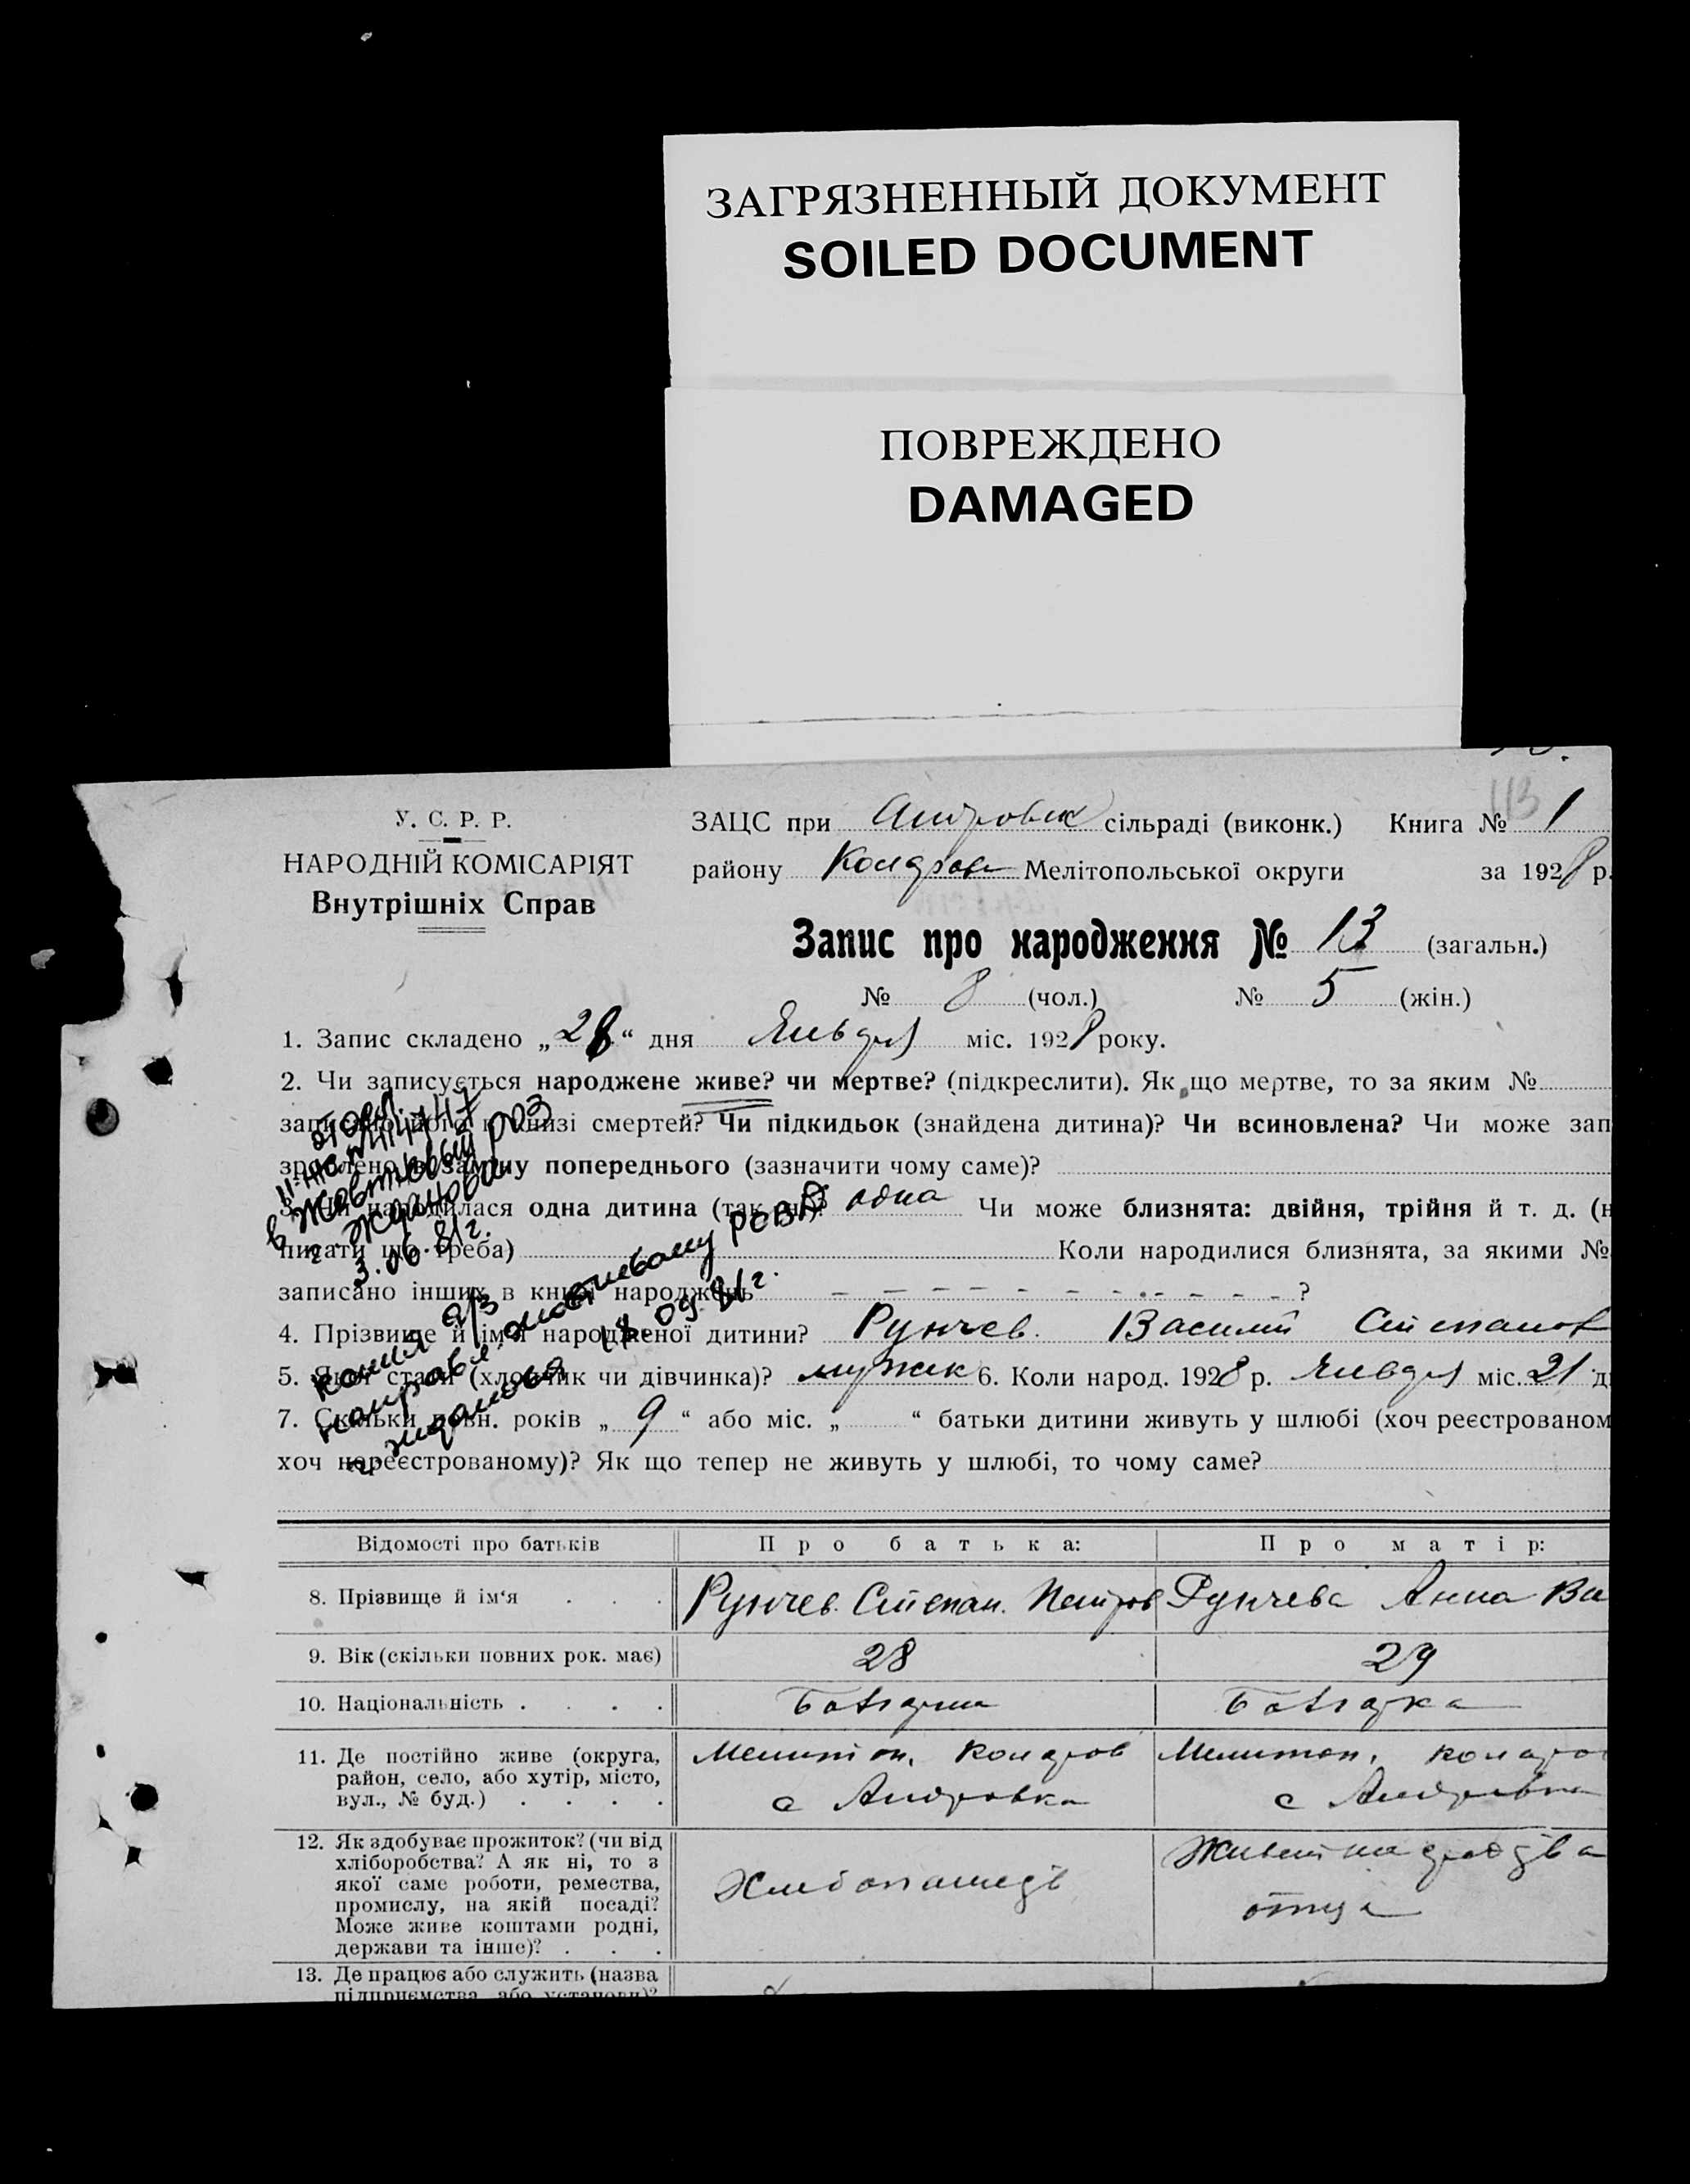 ЗАГРЯЗНЕННЫЙ ДОКУМЕНТ
SOILED DOCUMENT
ПОВРЕЖДЕНО
DAMAGED
113
У. С. Р. Р.
НАРОДНІЙ КОМІСАРІЯТ
Внутрішніх Справ
ЗАЦС при Андровск сільраді (виконк.) Книга № 1
району Коларов Мелітопольської округи за 1928 р.
Запис про народження № 13 (загальн.)
№ 8 (чол.) № 5 (жін.)
1. Запис складено „28“ дня Января міс. 1928 року.
2. Чи записується народжене живе? чи мертве? (підкреслити). Як що мертве, то за яким №
записано його в книзі смертей? Чи підкидьок (знайдена дитина)? Чи всиновлена? Чи може зап
зроблено в заміну попереднього (зазначити чому саме)?
3. Чи народилася одна дитина (так, ні)? одна Чи може близнята: двійня, трійня й т. д. (н
писати що треба) Коли народилися близнята, за якими №
записано інших в книзі народжень ?
4. Прізвище й ім'я народженої дитини? Рунчев Василий Степанов
5. Якої статі (хлопчик чи дівчинка)? мужск 6. Коли народ. 1928 р. Января міс. 21 д
7. Скільки повн. років „9“ або міс. „ “ батьки дитини живуть у шлюбі (хоч реєстрованом
хоч нереєстрованому)? Як що тепер не живуть у шлюбі, то чому саме?
повт.
II-ЖС № 414747
в Жовтневый РОЗ
г. Жданова
3.06.81г.
копия а/з
направл. Жовтневому РОВД
г. Жданова 18.09.81г.
Відомості про батьків Про батька: Про матір:
8. Прізвище й ім‘я . . . Рунчев Степан. Петров Рунчева Анна Ва
9. Вік (скільки повних рок. має) 28 29
10. Національність . . . . Болгарин Болгарка
11. Де постійно живе (округа, район, село, або хутір, місто, вул., № буд.) . . . . Мелитоп. Коларов с Андровка Мелитоп. Коларо с Андровка
12. Як здобуває прожиток? (чи від хліборобства? А як ні, то з якої саме роботи, ремества, промислу, на якій посаді? Може живе коштами родні, держави та інше)? . . . Хлебопашец Живет на средства отца
13. Де працює або служить (назва
підприємства або установи)?